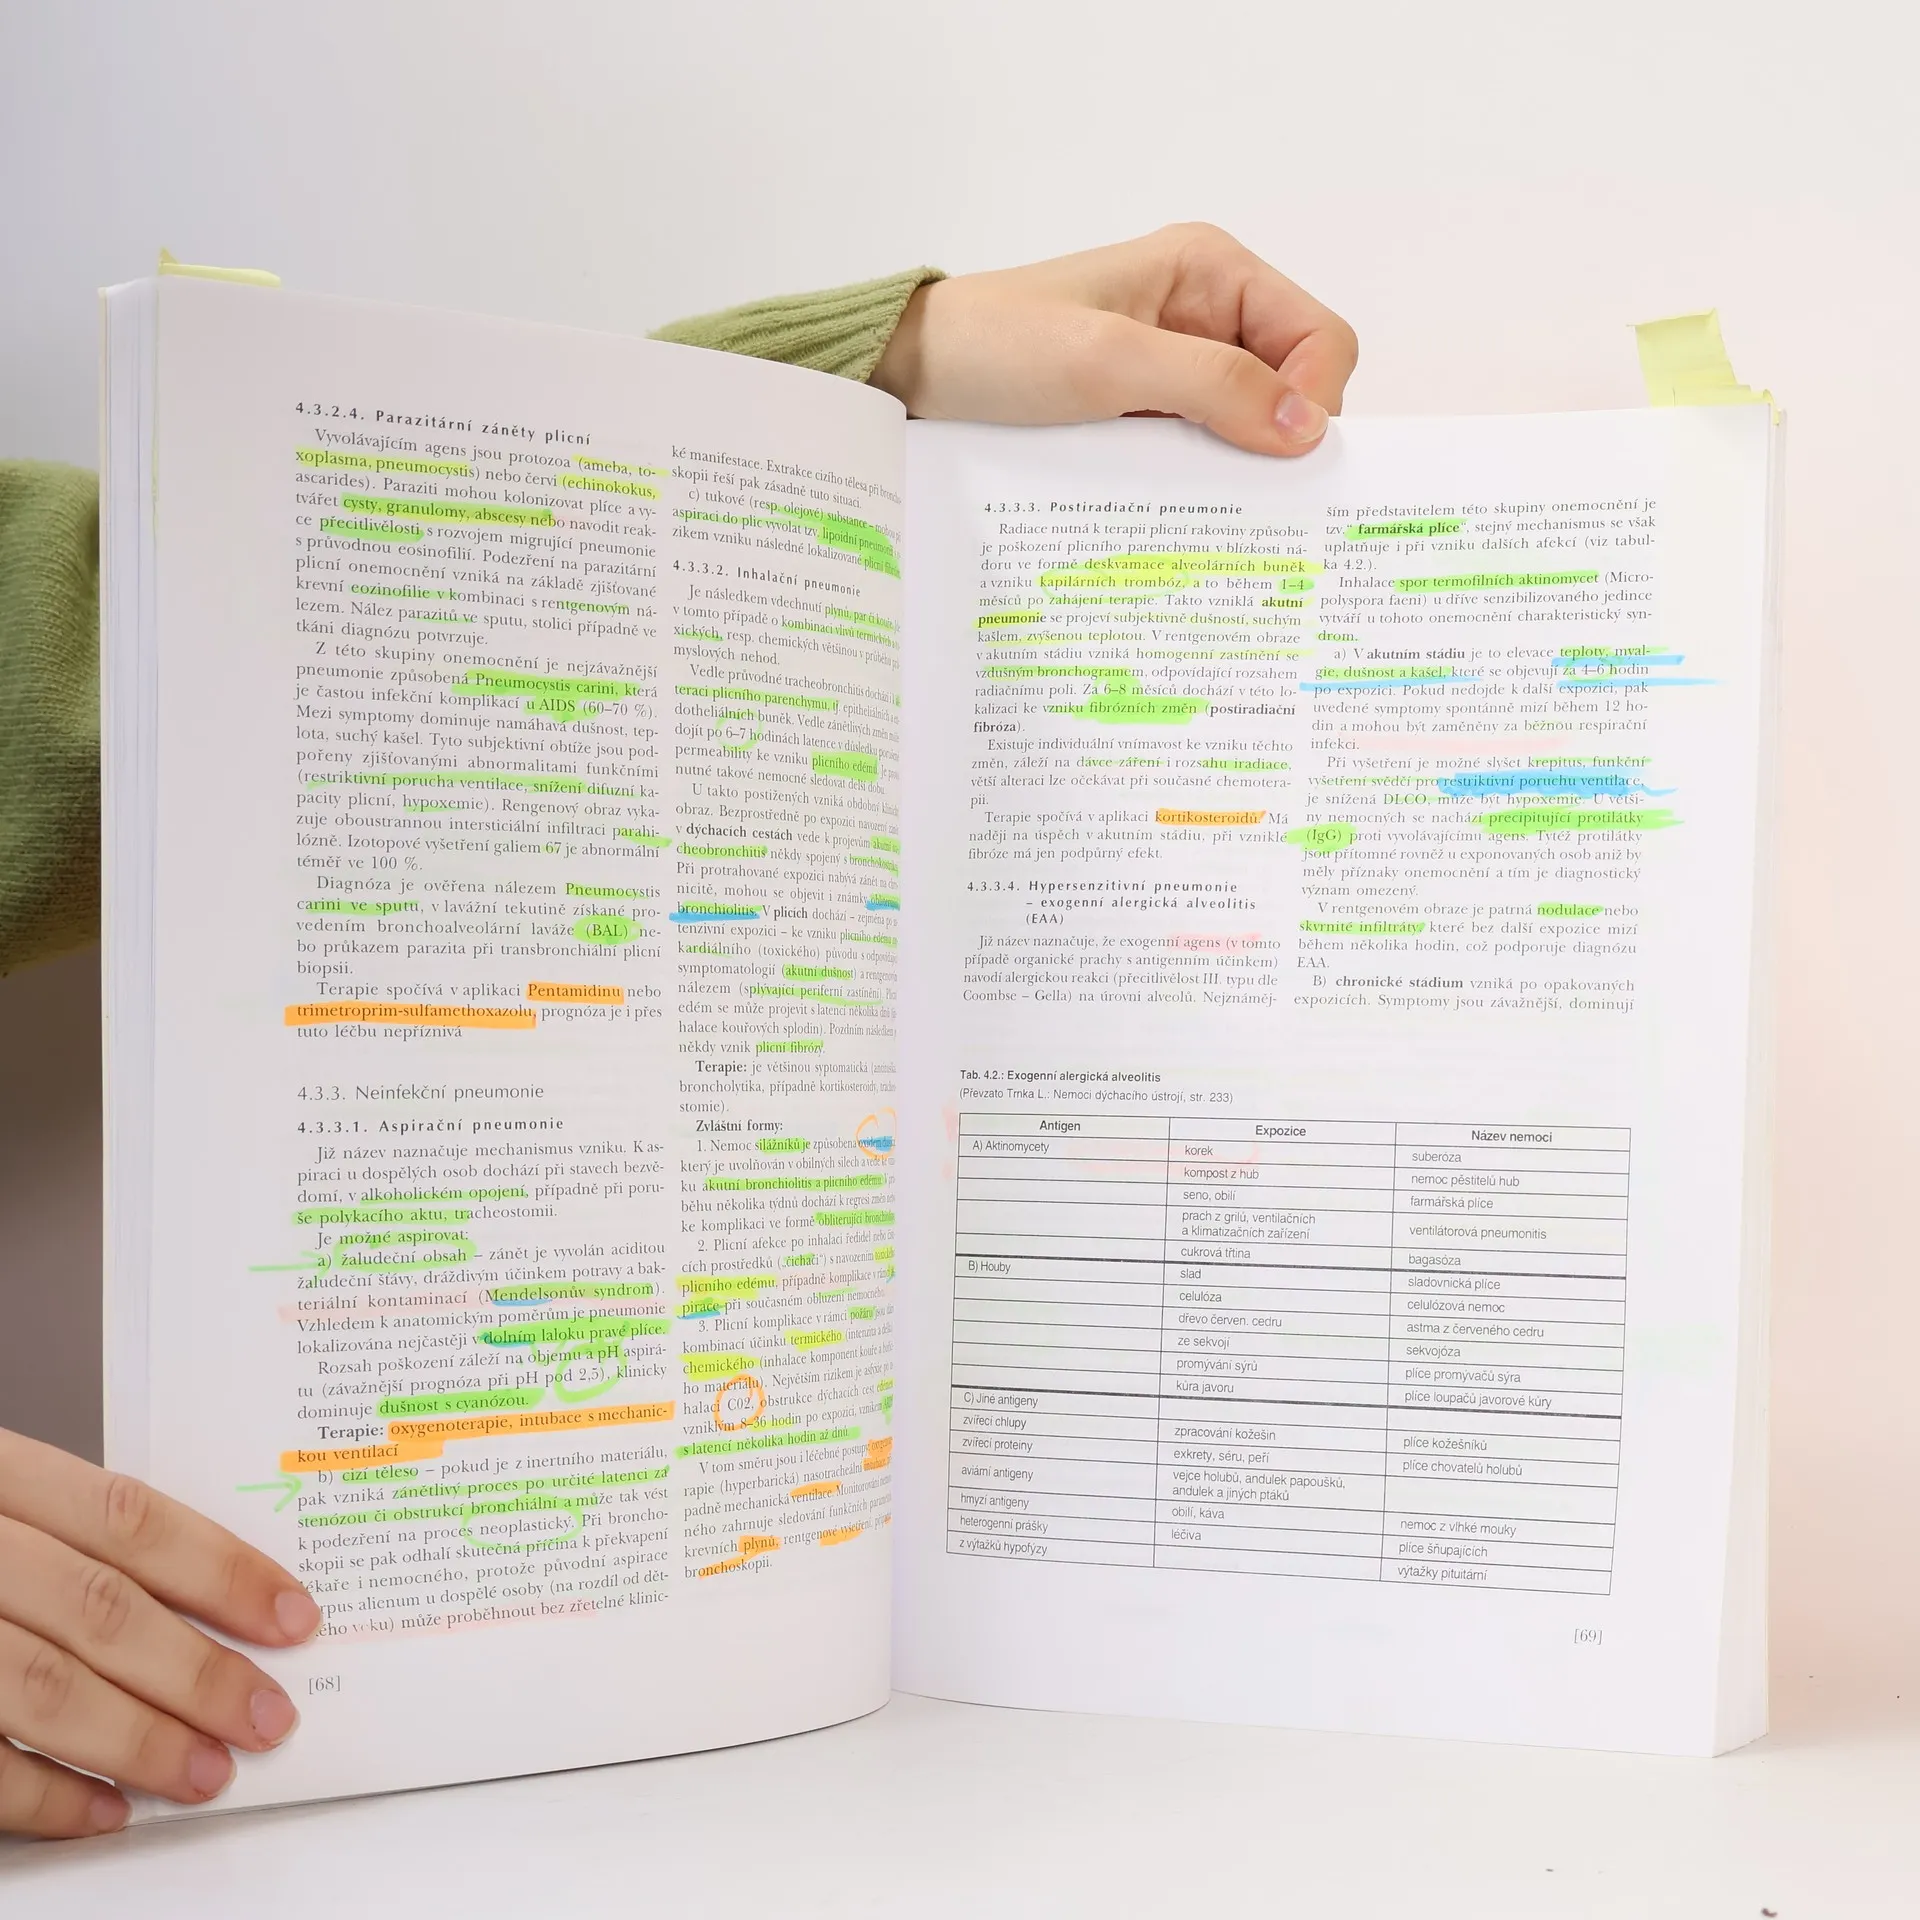 4.3.2.4. Parazitární záněty plicní
Vyvolávajícím agens jsou protozoa (ameba, to-
xoplasma, pneumocystis) nebo červi (echinokokus,
ascarides). Paraziti mohou kolonizovat plíce a vy-
tvářet cysty, granulomy, abscesy nebo navodit reak-
ce přecitlivělosti s rozvojem migrující pneumonie
s průvodnou eosinofilií. Podezření na parazitární
plicní onemocnění vzniká na základě zjišťované
krevní eozinofilie v kombinaci s rentgenovým ná-
lezem. Nález parazitů ve sputu, stolici případně ve
tkáni diagnózu potvrzuje.
Z této skupiny onemocnění je nejzávažnější
pneumonie způsobená Pneumocystis carini, která
je častou infekční komplikací u AIDS (60–70 %).
Mezi symptomy dominuje namáhavá dušnost, tep-
lota, suchý kašel. Tyto subjektivní obtíže jsou pod-
pořeny zjišťovanými abnormalitami funkčními
(restriktivní porucha ventilace, snížení difuzní ka-
pacity plicní, hypoxemie). Rengenový obraz vyka-
zuje oboustrannou intersticiální infiltraci parahi-
lózně. Izotopové vyšetření galiem 67 je abnormální
téměř ve 100 %.
Diagnóza je ověřena nálezem Pneumocystis
carini ve sputu, v lavážní tekutině získané pro-
vedením bronchoalveolární laváže (BAL) ne-
bo průkazem parazita při transbronchiální plicní
biopsii.
Terapie spočívá v aplikaci Pentamidinu nebo
trimetroprim-sulfamethoxazolu, prognóza je i přes
tuto léčbu nepříznivá
4.3.3. Neinfekční pneumonie
4.3.3.1. Aspirační pneumonie
Již název naznačuje mechanismus vzniku. K as-
piraci u dospělých osob dochází při stavech bezvě-
domí, v alkoholickém opojení, případně při poru-
še polykacího aktu, tracheostomii.
Je možné aspirovat:
a) žaludeční obsah – zánět je vyvolán aciditou
žaludeční šťávy, dráždivým účinkem potravy a bak-
teriální kontaminací (Mendelsonův syndrom).
Vzhledem k anatomickým poměrům je pneumonie
lokalizována nejčastěji v dolním laloku pravé plíce.
Rozsah poškození záleží na objemu a pH aspirá-
tu (závažnější prognóza při pH pod 2,5), klinicky
dominuje dušnost s cyanózou.
Terapie: oxygenoterapie, intubace s mechanic-
kou ventilací
b) cizí těleso – pokud je z inertního materiálu,
pak vzniká zánětlivý proces po určité latenci za
stenózou či obstrukcí bronchiální a může tak vést
k podezření na proces neoplastický. Při broncho-
skopii se pak odhalí skutečná příčina k překvapení
lékaře i nemocného, protože původní aspirace
alienum u dospělé osoby (na rozdíl od dět-
věku) může proběhnout bez zřetelné klinic-
[68]
ké manifestace. Extrakce cizího tělesa při broncho-
skopii řeší pak zásadně tuto situaci.
c) tukové (resp. olejové) substance – mohou při
aspiraci do plic vyvolat tzv. lipoidní pneumonii
zikem vzniku následné lokalizované plicní
4.3.3.2. Inhalační pneumonie
Je následkem vdechnutí plynů, par či kouře,
v tomto případě o kombinaci vlivů termických a
xických, resp. chemických většinou v průběhu
myslových nehod.
Vedle průvodné tracheobronchitis dochází i k
teraci plicního parenchymu, tj. epitheliálních a
dotheliálních buněk. Vedle zánětlivých změn
dojít po 6–7 hodinách latence v důsledku
permeability ke vzniku plicního edému. Je
nutné takové nemocné sledovat delší dobu.
U takto postižených vzniká obdobný klinický
obraz. Bezprostředně po expozici navození
v dýchacích cestách vede k projevům akutní
cheobronchitis někdy spojený s bronchokonstrikcí.
Při protrahované expozici nabývá zánět na
nicitě, mohou se objevit i známky
bronchiolitis. V plicích dochází – zejména po
tenzivní expozici – ke vzniku plicního edému
kardiálního (toxického) původu s odpovídající
symptomatologií (akutní dušnost) a rentgenovým
nálezem (splývající periferní zastínění).
edém se může projevit s latencí několika dnů
halace kouřových splodin). Pozdním následkem
někdy vznik plicní fibrózy.
Terapie: je většinou syptomatická
broncholytika, případně kortikosteroidy,
stomie).
Zvláštní formy:
1. Nemoc silážníků je způsobena
který je uvolňován v obilných silech a vede ke
ku akutní bronchiolitis a plicního edému.
běhu několika týdnů dochází k regresi změn
ke komplikaci ve formě obliterující
2. Plicní afekce po inhalaci ředidel nebo
cích prostředků („čichači“) s navozením
plicního edému, případně komplikace v rámci
pirace při současném obluzení nemocného.
3. Plicní komplikace v rámci požáru jsou
kombinací účinku termického (intenzita a
chemického (inhalace komponent kouře a
ho materiálu). Největším rizikem je asfyxie po
halaci C02, obstrukce dýchacích cest
vzniklým 8–36 hodin po expozici, vznikem
s latencí několika hodin až dnů.
V tom směru jsou i léčebné postupy:
rapie (hyperbarická) nasotracheální
padně mechanická ventilace. Monitorování
ného zahrnuje sledování funkčních
krevních plynů, rentgenové vyšetření,
bronchoskopii.
4.3.3.3. Postiradiační pneumonie
Radiace nutná k terapii plicní rakoviny způsobu-
je poškození plicního parenchymu v blízkosti ná-
doru ve formě deskvamace alveolárních buněk
a vzniku kapilárních trombóz, a to během 1–4
měsíců po zahájení terapie. Takto vzniklá akutní
pneumonie se projeví subjektivně dušností, suchým
kašlem, zvýšenou teplotou. V rentgenovém obraze
v akutním stádiu vzniká homogenní zastínění se
vzdušným bronchogramem, odpovídající rozsahem
radiačnímu poli. Za 6–8 měsíců dochází v této lo-
kalizaci ke vzniku fibrózních změn (postiradiační
fibróza).
Existuje individuální vnímavost ke vzniku těchto
změn, záleží na dávce záření i rozsahu iradiace,
větší alteraci lze očekávat při současné chemotera-
pii.
Terapie spočívá v aplikaci kortikosteroidů. Má
naději na úspěch v akutním stádiu, při vzniklé
fibróze má jen podpůrný efekt.
4.3.3.4. Hypersenzitivní pneumonie
– exogenní alergická alveolitis
(EAA)
Již název naznačuje, že exogenní agens (v tomto
případě organické prachy s antigenním účinkem)
navodí alergickou reakci (přecitlivělost III. typu dle
Coombse – Gella) na úrovni alveolů. Nejznáměj-
ším představitelem této skupiny onemocnění je
tzv.“ farmářská plíce“, stejný mechanismus se však
uplatňuje i při vzniku dalších afekcí (viz tabul-
ka 4.2.).
Inhalace spor termofilních aktinomycet (Micro-
polyspora faeni) u dříve senzibilizovaného jedince
vytváří u tohoto onemocnění charakteristický syn-
drom.
a) V akutním stádiu je to elevace teploty, myal-
gie, dušnost a kašel, které se objevují za 4–6 hodin
po expozici. Pokud nedojde k další expozici, pak
uvedené symptomy spontánně mizí během 12 ho-
din a mohou být zaměněny za běžnou respirační
infekci.
Při vyšetření je možné slyšet krepitus, funkční
vyšetření svědčí pro restriktivní poruchu ventilace,
je snížená DLCO, může být hypoxemie. U větši-
ny nemocných se nachází precipitující protilátky
(IgG) proti vyvolávajícímu agens. Tytéž protilátky
jsou přítomné rovněž u exponovaných osob aniž by
měly příznaky onemocnění a tím je diagnostický
význam omezený.
V rentgenovém obraze je patrná nodulace nebo
skvrnité infiltráty, které bez další expozice mizí
během několika hodin, což podporuje diagnózu
EAA.
B) chronické stádium vzniká po opakovaných
expozicích. Symptomy jsou závažnější, dominují
Tab. 4.2.: Exogenní alergická alveolitis
(Převzato Trnka L.: Nemoci dýchacího ústrojí, str. 233)
Antigen Expozice Název nemoci
A) Aktinomycety korek suberóza
kompost z hub nemoc pěstitelů hub
seno, obilí farmářská plíce
prach z grilů, ventilačních
a klimatizačních zařízení ventilátorová pneumonitis
cukrová třtina bagasóza
B) Houby slad sladovnická plíce
celulóza celulózová nemoc
dřevo červen. cedru astma z červeného cedru
ze sekvojí sekvojóza
promývání sýrů plíce promývačů sýra
kůra javoru plíce loupačů javorové kůry
C) Jiné antigeny
zvířecí chlupy zpracování kožešin plíce kožešníků
zvířecí proteiny exkrety, séru, peří plíce chovatelů holubů
aviární antigeny vejce holubů, andulek papoušků,
andulek a jiných ptáků
hmyzí antigeny obilí, káva nemoc z vlhké mouky
heterogenní prášky léčiva plíce šňupajících
z výtažků hypofýzy výtažky pituitární
[69]